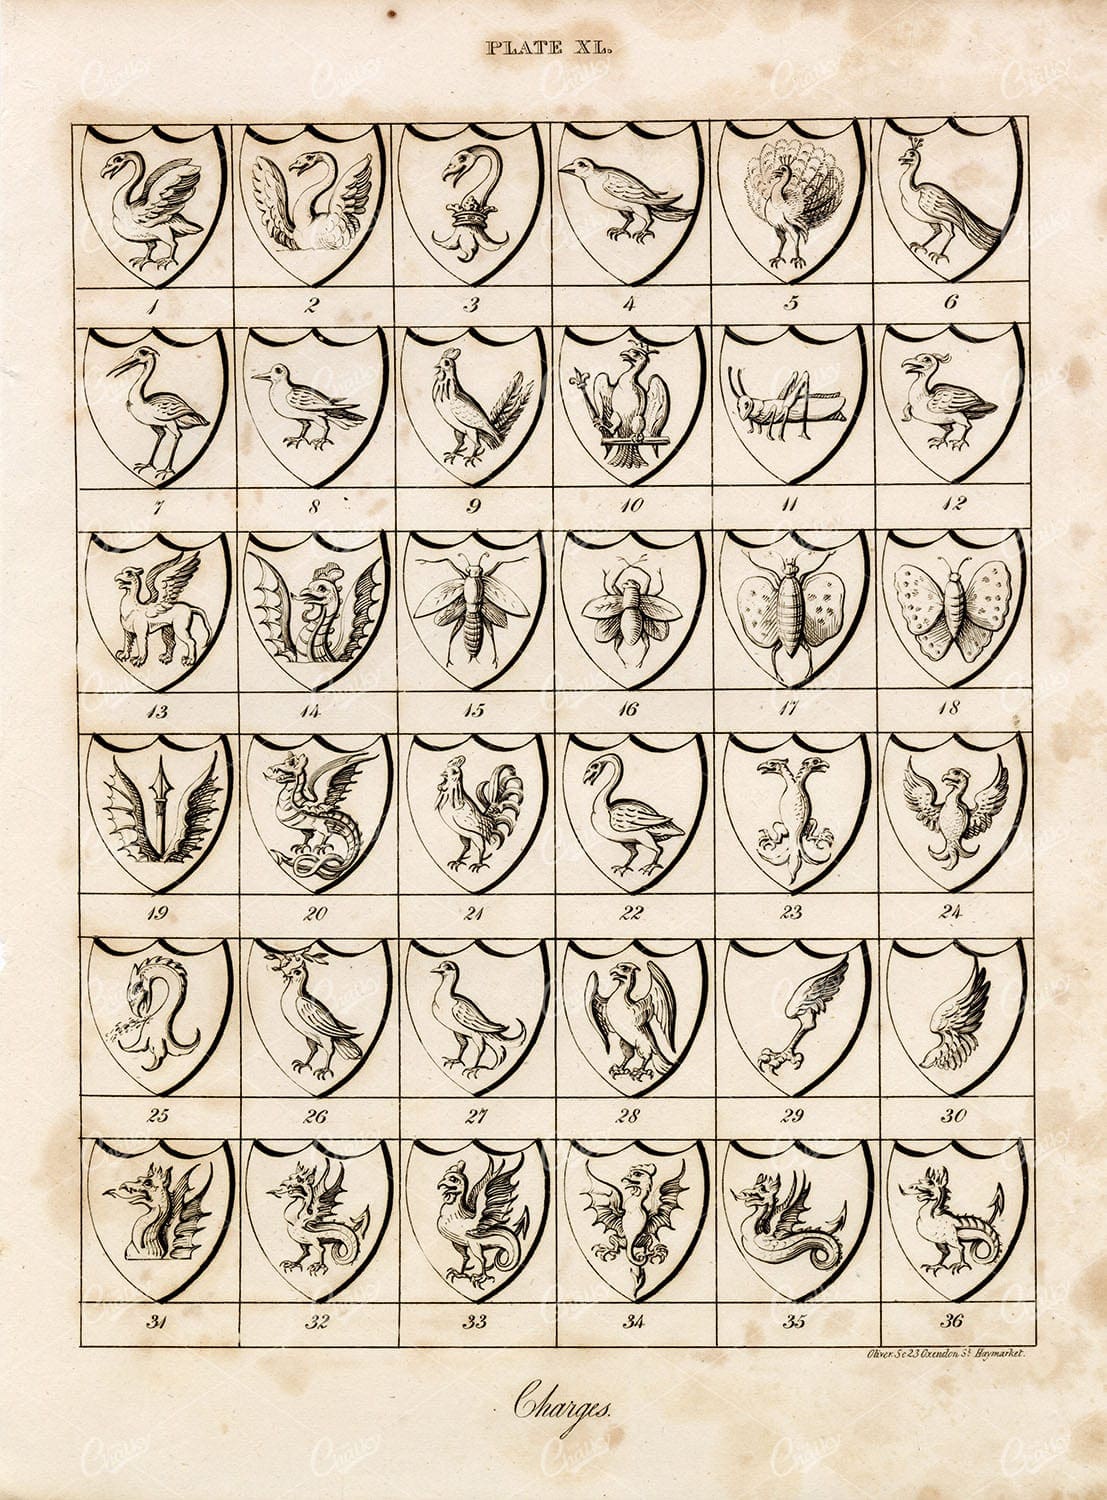 PLATE XL.
1 2 3 4 5 6
7 8 9 10 11 12
13 14 15 16 17 18
19 20 21 22 23 24
25 26 27 28 29 30
31 32 33 34 35 36
Oliver. Sc 23 Oxendon St. Haymarket.
Charges.
Chalky